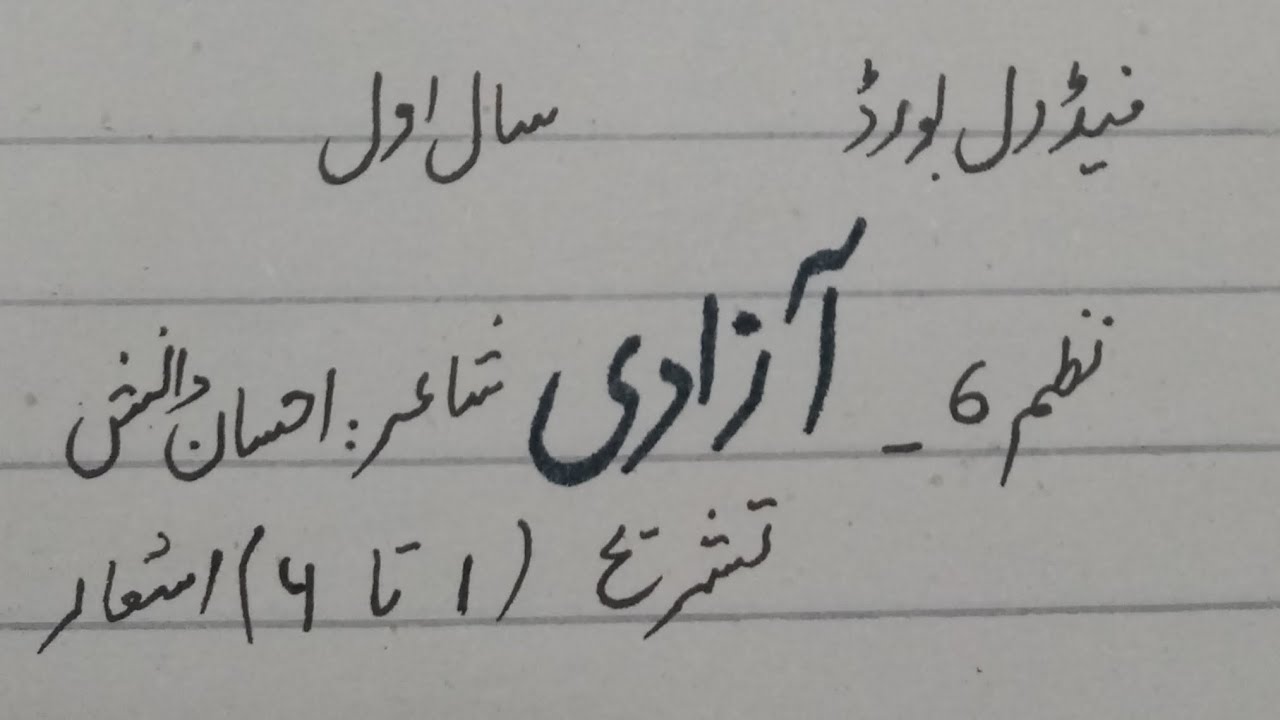 فیڈرل بورڈ سال اول
نظم 6 - آزادی شاعر: احسان دانش
تشریح (۱ تا ۶) اشعار